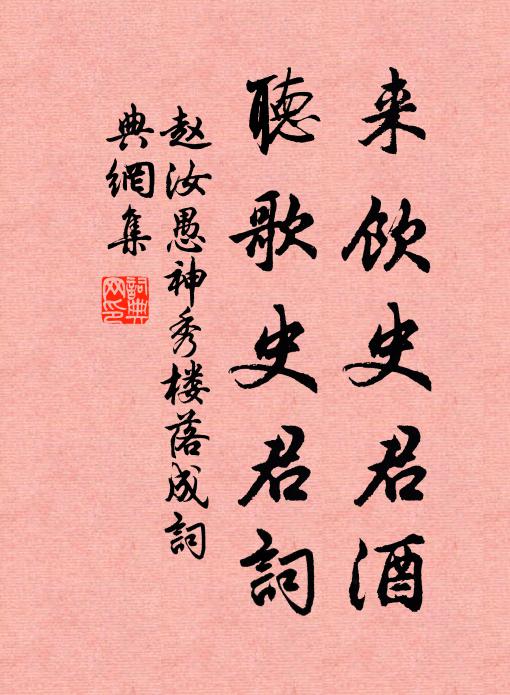 来饮史君酒
聽歌史君詞
赵汝愚神秀楼落成詞
典網集
詞典
网印